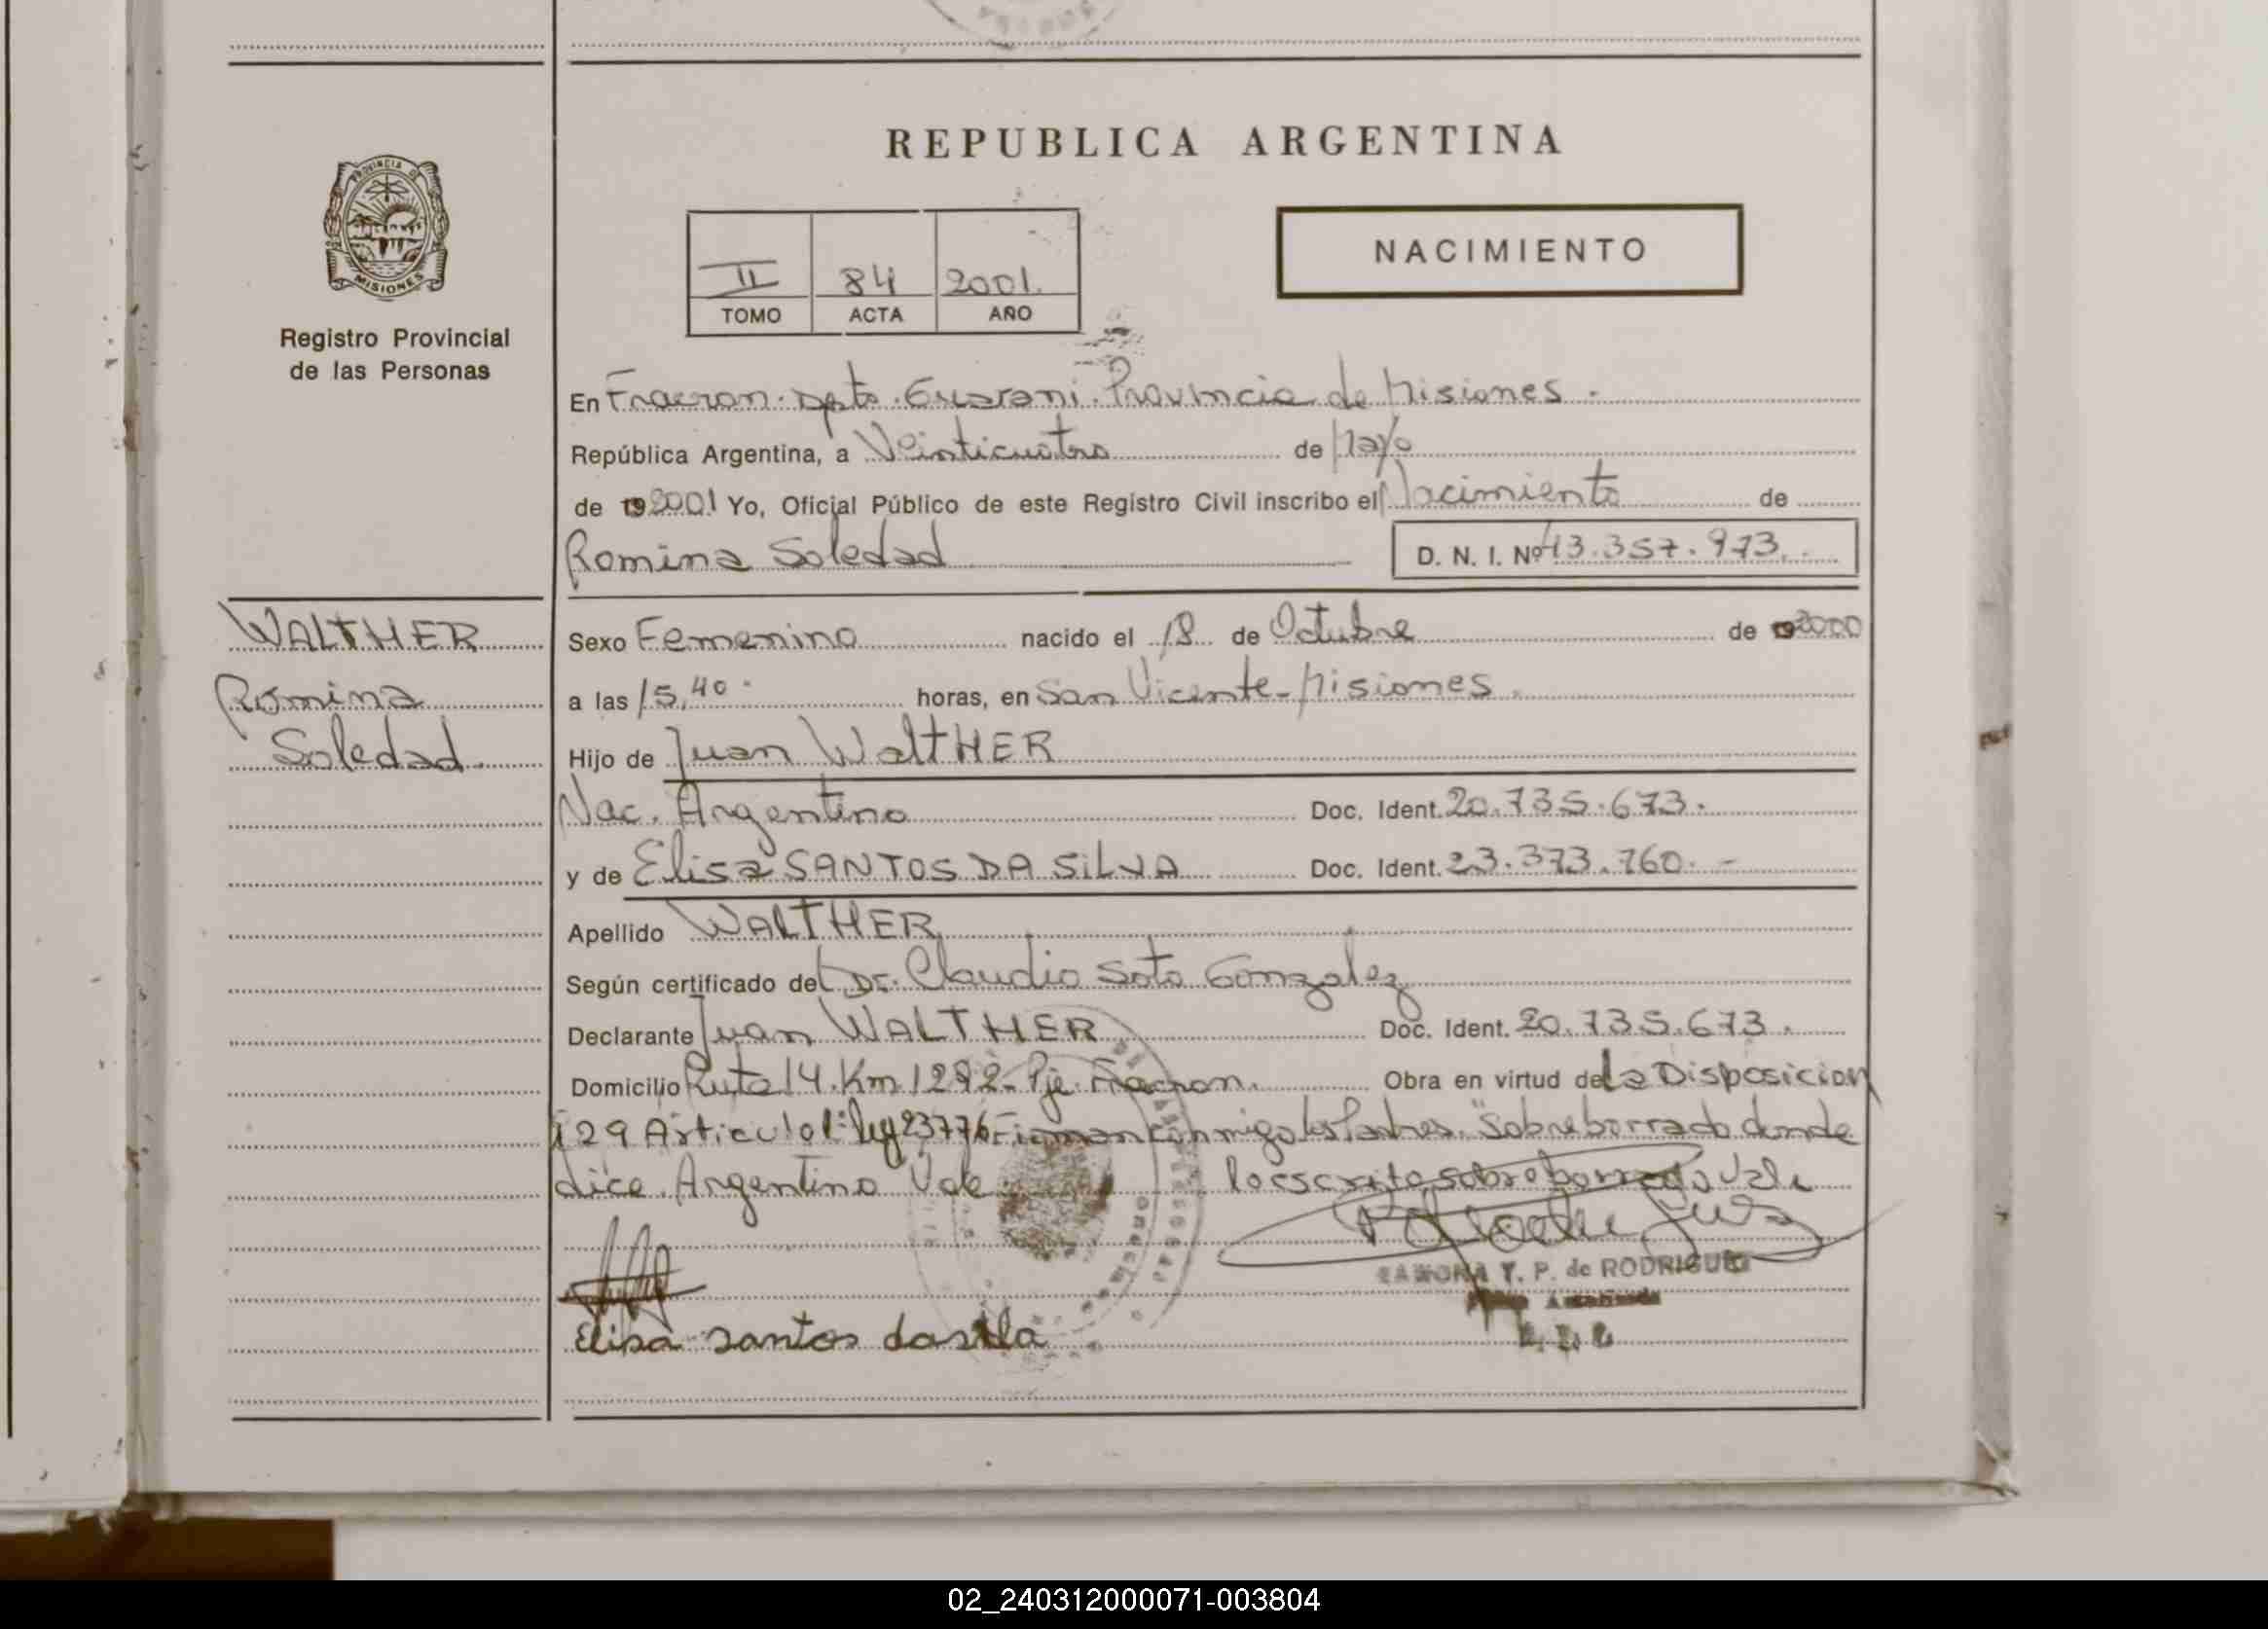 REPUBLICA ARGENTINA
PROVINCIA DE
MISIONES
Registro Provincial
de las Personas
NACIMIENTO
II 84 2001.
TOMO ACTA AÑO
En Fracran. Dpto. Guarani. Provincia de Misiones.-
República Argentina, a Veinticuatro de Mayo
de 192001 Yo, Oficial Público de este Registro Civil inscribo el Nacimiento de
Romina Soledad D. N. I. Nº 43.357.973.
WALTHER
Romina
Soledad.
Sexo Femenino nacido el 18 de Octubre de 192000
a las 15,40- horas, en San Vicente-Misiones.
Hijo de Juan WaltHER
Nac. Argentino Doc. Ident. 20.735.673.
y de Elisa SANTOS DA SILVA Doc. Ident. 23.373.760.-
Apellido WALTHER
Según certificado del Dr. Claudio Soto Gonzalez
Declarante Juan WALTHER Doc. Ident. 20.735.673.
Domicilio Ruta 14. Km 1292- Pje. Fracran. Obra en virtud de la Disposicion
129 Articulo 1: ley 23776 Firman conmigo los Padres. "Sobreborrado donde
dice Argentino Vale lo escrito sobre borrado, Vale
RAMONA Y. P. de RODRIGUEZ
Elisa santos dasilla
02_240312000071-003804